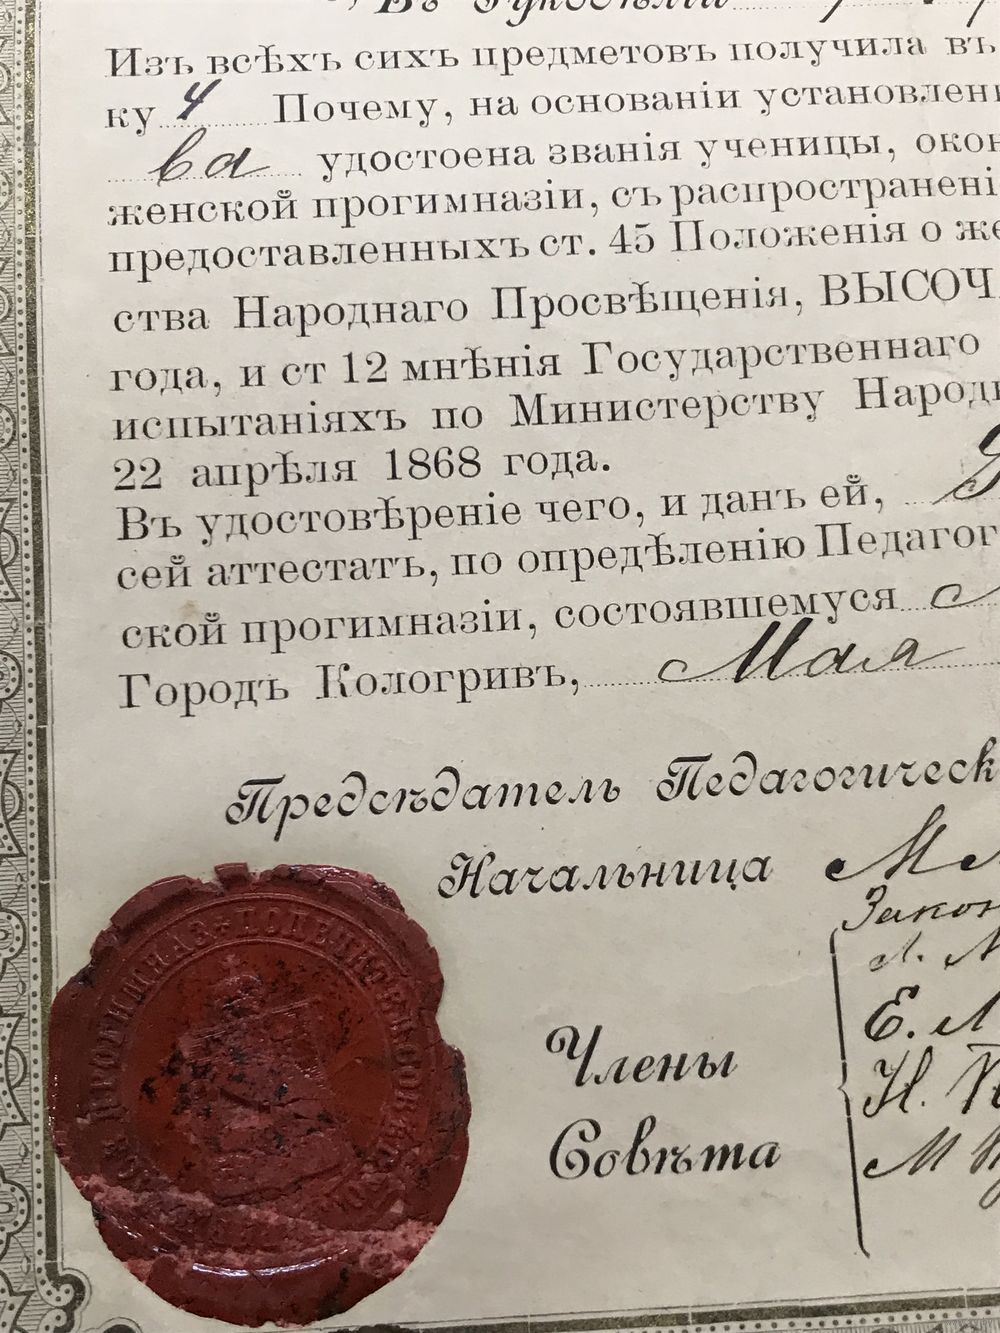 Изъ всѣхъ сихъ предметовъ получила въ
ку 4 Почему, на основаніи установлен
ва удостоена званія ученицы, окон
женской прогимназіи, съ распространені
предоставленныхъ ст. 45 Положенія о же
ства Народнаго Просвѣщенія, ВЫСОЧ
года, и ст 12 мнѣнія Государственнаго
испытаніяхъ по Министерству Народн
22 апрѣля 1868 года.
Въ удостовѣреніе чего, и данъ ей,
сей аттестатъ, по опредѣленію Педагог
ской прогимназіи, состоявшемуся
Городъ Кологривъ, Мая
Предсѣдатель Педагогическ
Начальница
Закон
Е. Л
Члены
Н.
Совѣта
М